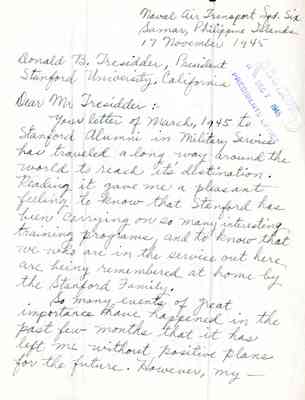 Naval Air Transport Sqd. Six
Samar, Philippine Islands
17 November 1945
Donald B. Tresidder, President
Stanford University, California
Dear Mr Tresidder:
Your letter of March, 1945 to
Stanford Alumni in Military Service
has traveled a long way around the
world to reach its destination.
Reading it gave me a pleasant
feeling to know that Stanford has
been carrying on so many interesting
training programs, and to know that
we who are in the service out here
are being remembered at home by
the Stanford Family.
So many events of great
importance have happened in the
past few months that it has
left me without positive plans
for the future. However, my —